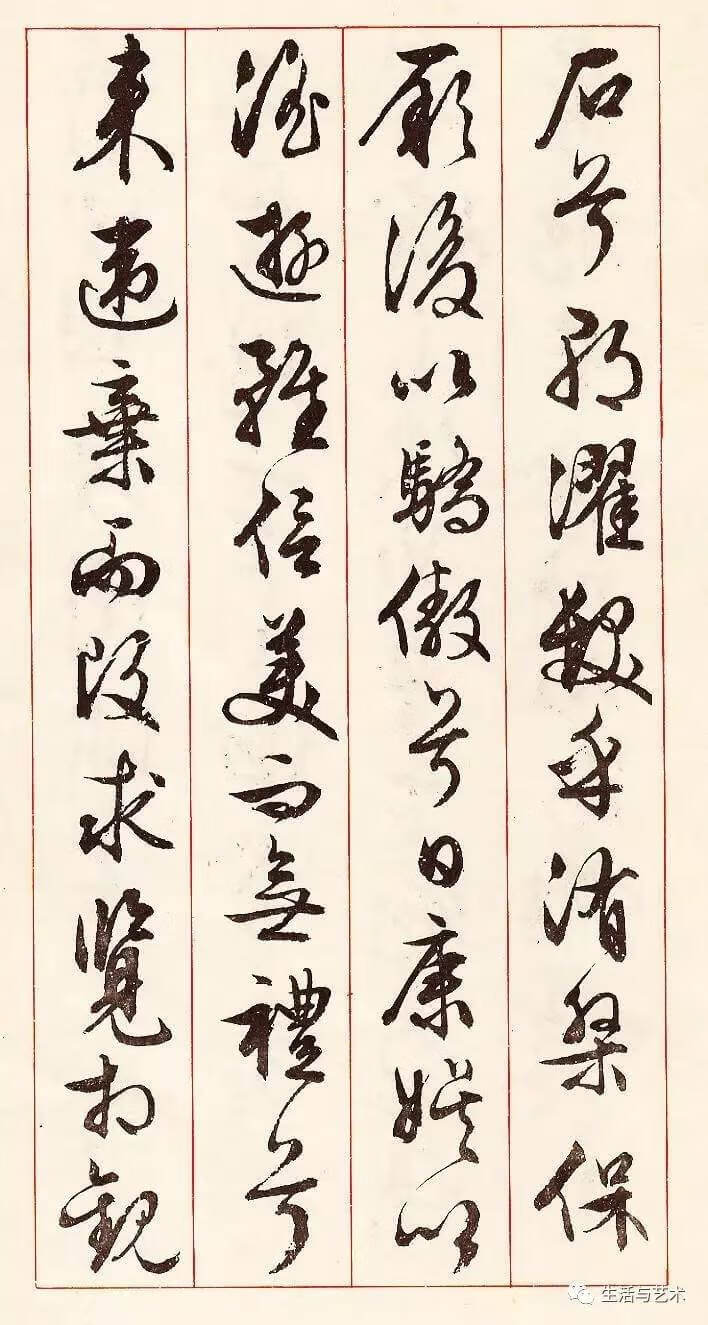 石兮朝濯髮乎洧槃保
厥後以驕傲兮日康娛以
淫遊雖信美而無禮兮
來違棄而改求覽相觀
生活与艺术